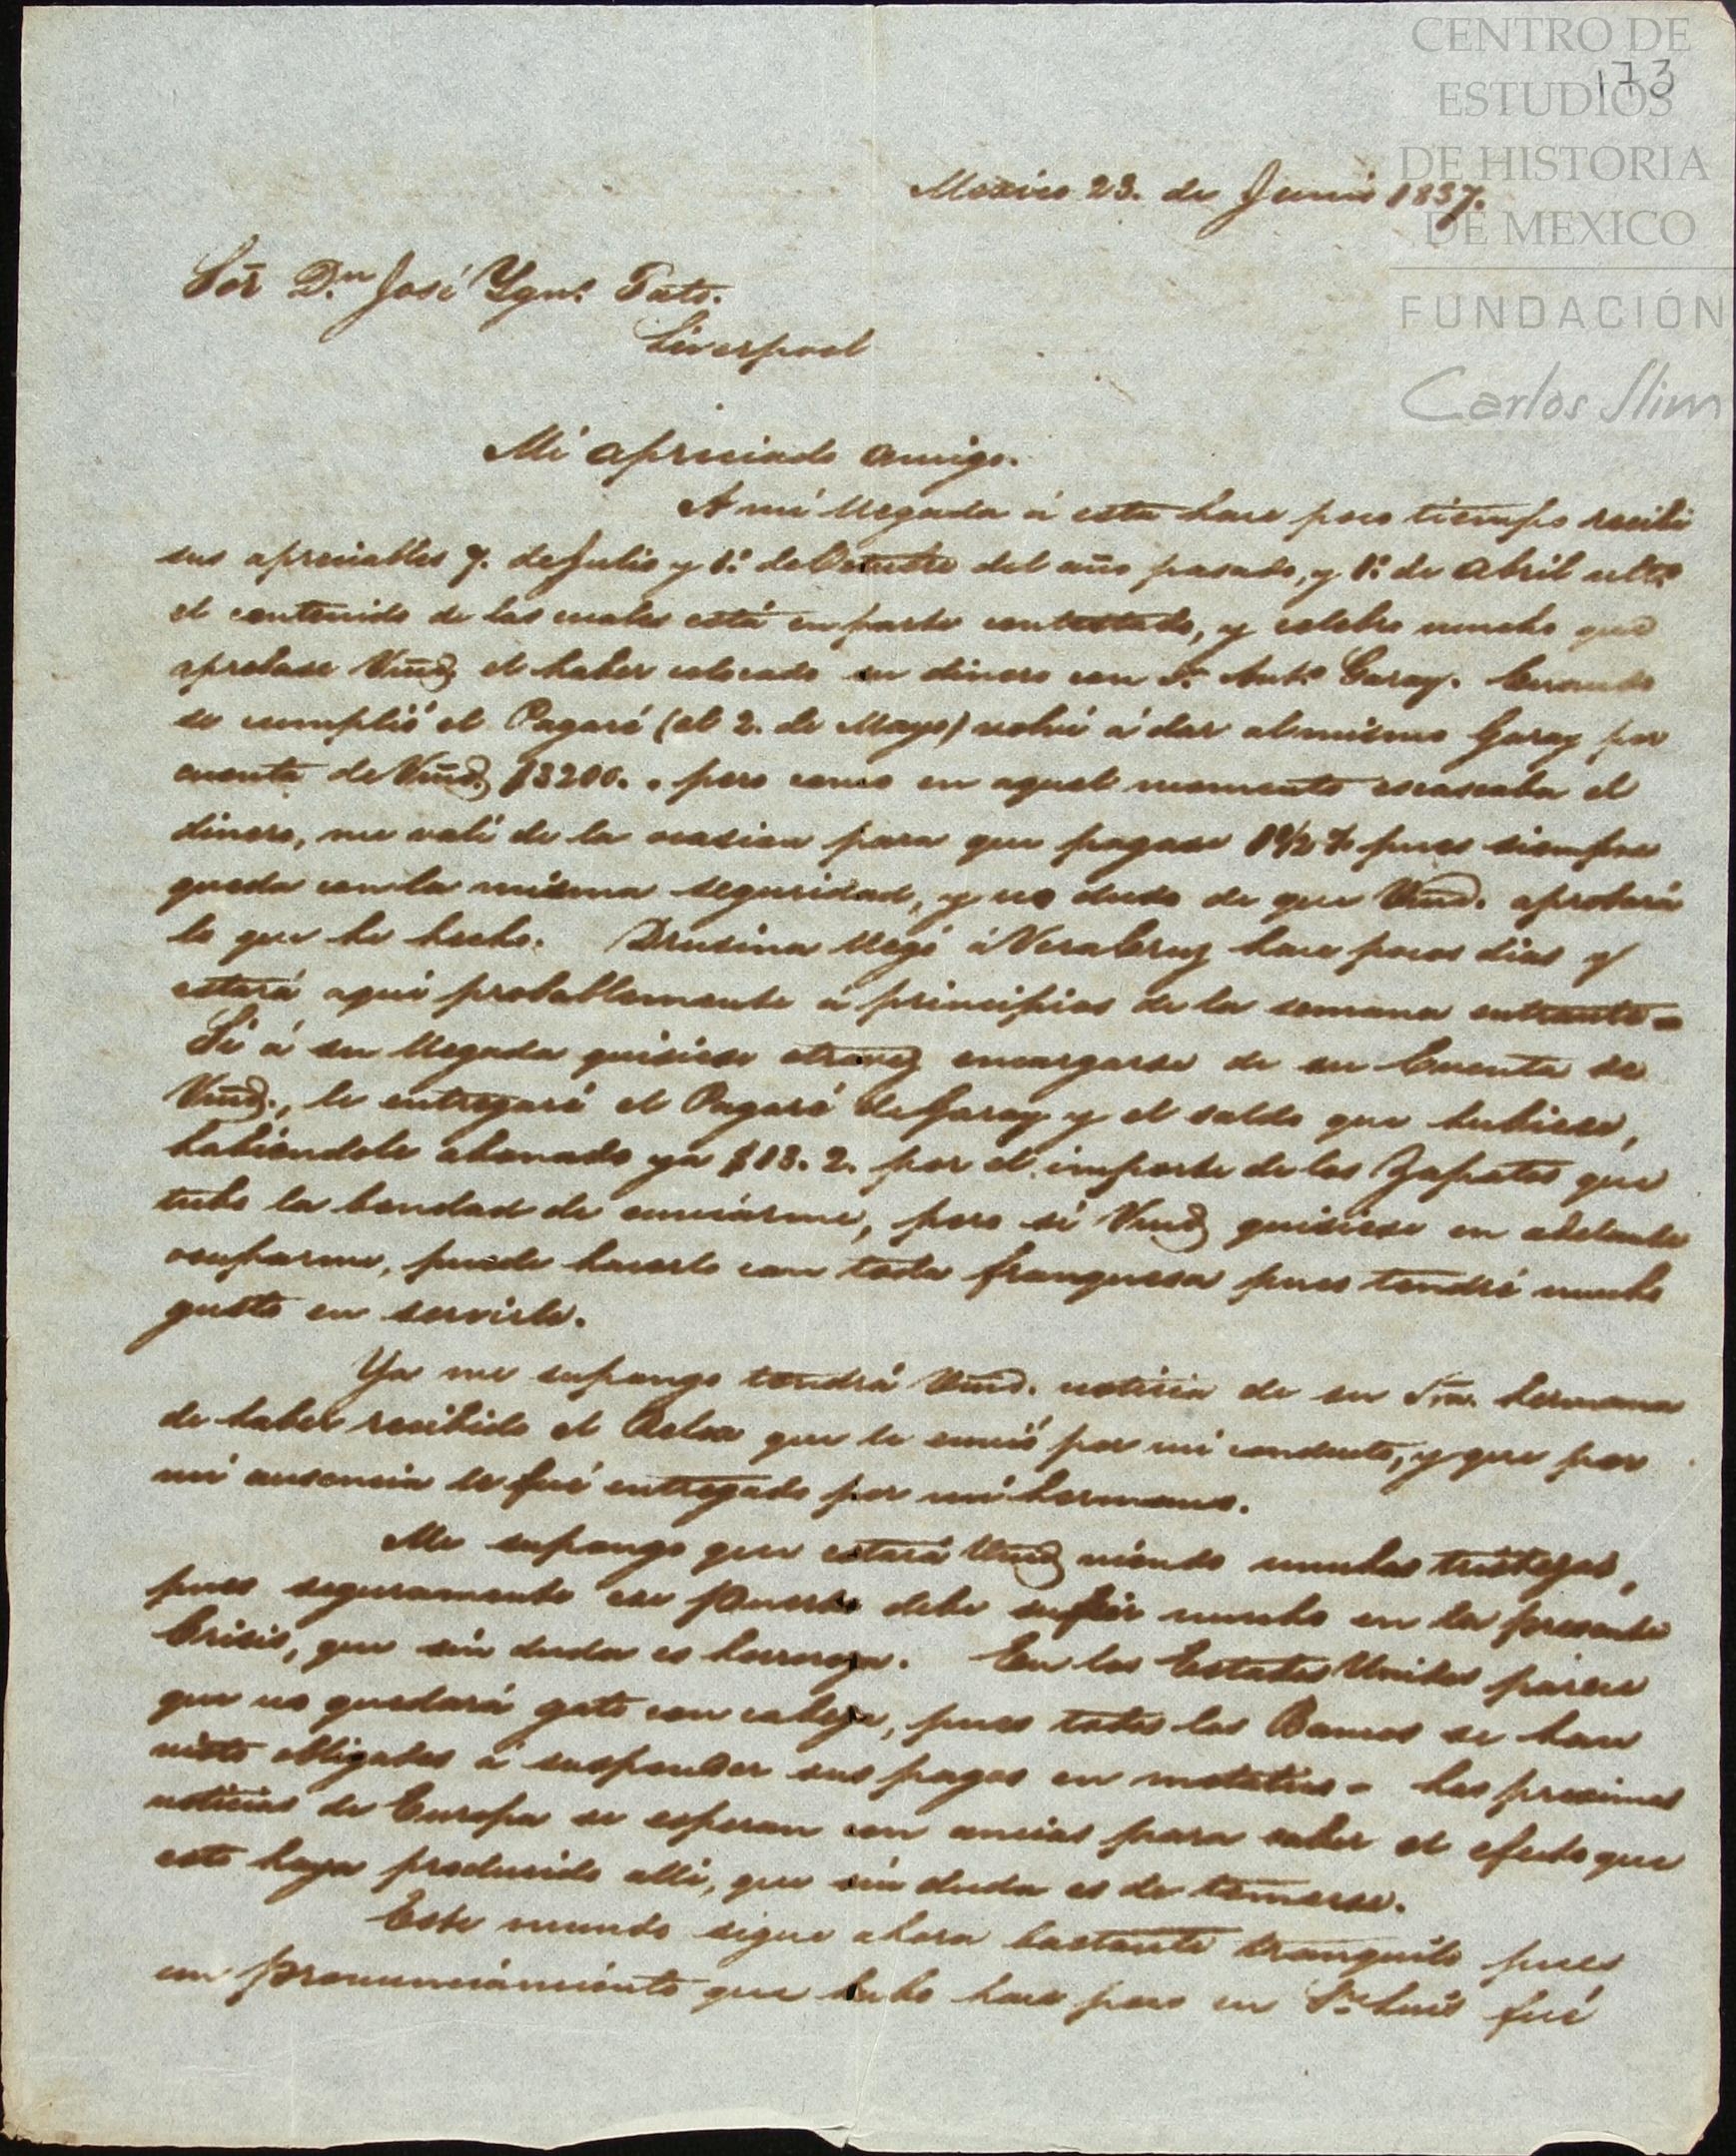 CENTRO DE
ESTUDIOS
DE HISTORIA
DE MEXICO
FUNDACIÓN
Carlos Slim
173
Mexico 23. de Junio 1837.
Sōr Dn José Ygno
Liverpool
Mi apreciado amigo.
A mi llegada á esta hace poco tiempo recibi
sus apreciables 7. de Julio y 1º de Octubre del año pasado, y 1º de Abril ulto
el contenido de las cuales está en parte contestado, y celebro mucho que
aprobase Vmd. el haber colocado su dinero con Dn Anto Garay. Cuando
se cumplió el Pagaré (el 2. de Mayo) volvi á dar al mismo Garay por
cuenta de Vmd. $3200. . pero como en aquel momento escaseaba el
dinero, me vali de la ocasion para que pagase 1½ % pues siempre
queda con la misma seguridad, y no dudo de que Vmd. aprobará
lo que he hecho. Drusina llegó á Vera Cruz hace pocos dias y
estará aqui probablemente a principios de la semana entrante -
Si á su llegada quisiese otravez encargarse de su Cuenta de
Vmd., le entregaré el Pagaré de Garay y el saldo que hubiese,
habiendole abonado ya $13. 2. por el importe de los Zapatos que
tubo la bondad de enviarme, pero si Vmd quisiese en adelante
ocuparme, puede hacerlo con toda franquesa pues tendré mucho
gusto en servirle.
Ya me supongo tendrá Vmd. noticia de su Sra. hermana
de haber recibido el Relox que le envió por mi conducto, y que por
mi ausencia le fué entregado por mi hermano.
Me supongo que estará Vmd viendo muchas tristezas,
pues seguramente ese Puerto debe sufrir mucho en la presente
Crisis, que sin duda es horrorosa. En los Estados Unidos parece
que no quedará gato con cabeza, pues todos los Bancos se han
visto obligados á suspender sus pagos en metalico - Las proximas
noticias de Europa se esperan con ancias para saber el efecto que
esto haya producido alli, que sin duda es de temerse.
Este mundo sigue ahora bastante tranquilo pues
un pronunciamiento que hubo hace poco en Sn Luis fué